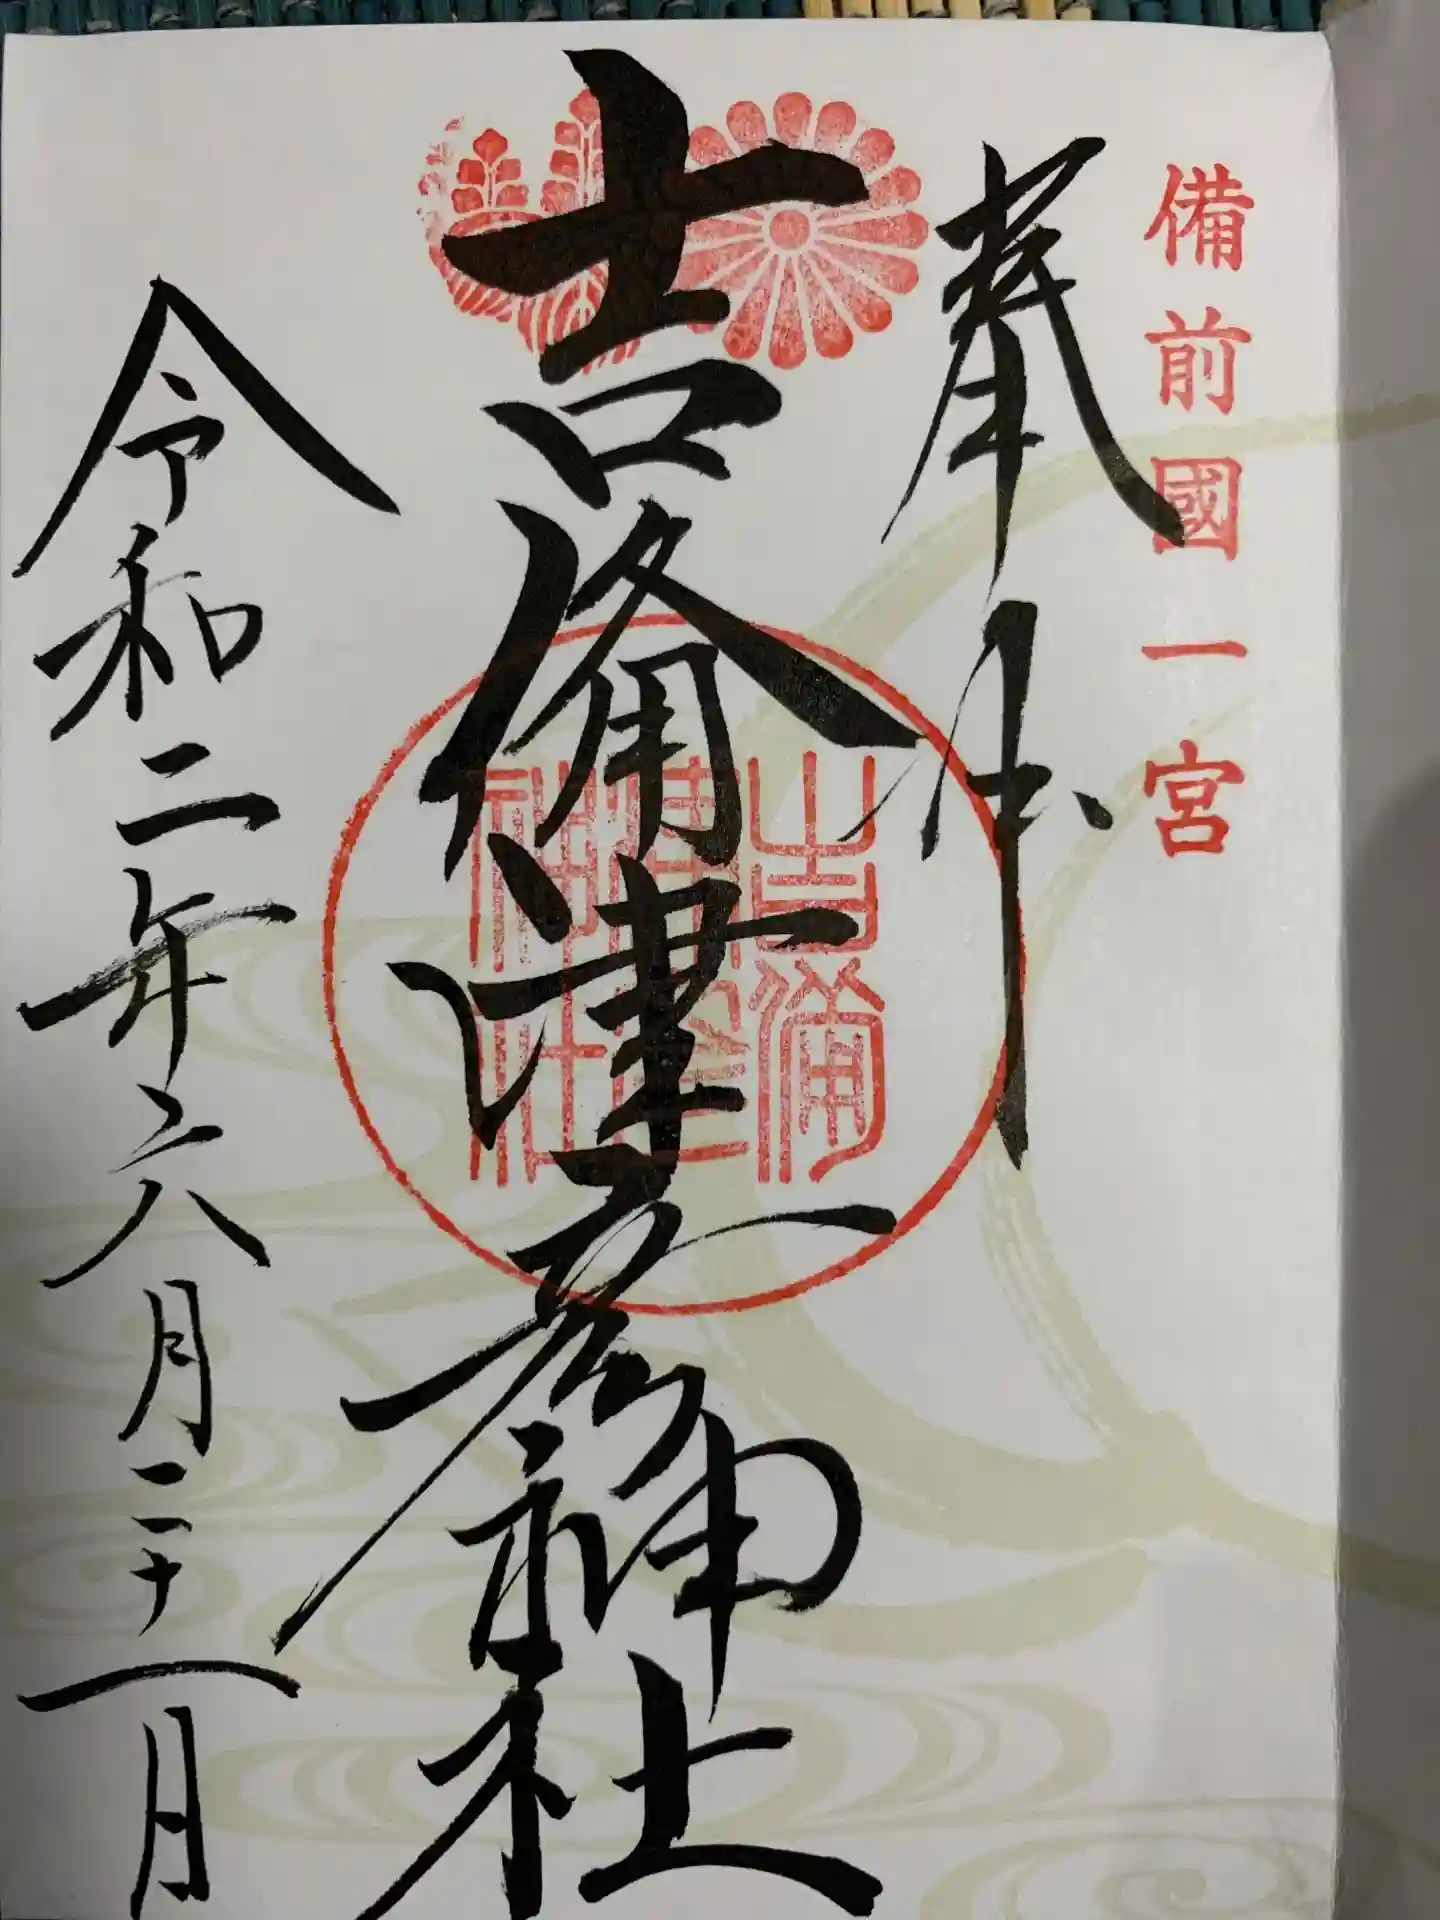 備前國一宮
奉拝
吉備津彦神社
吉備
津彦
神社
令和二年六月二十一日